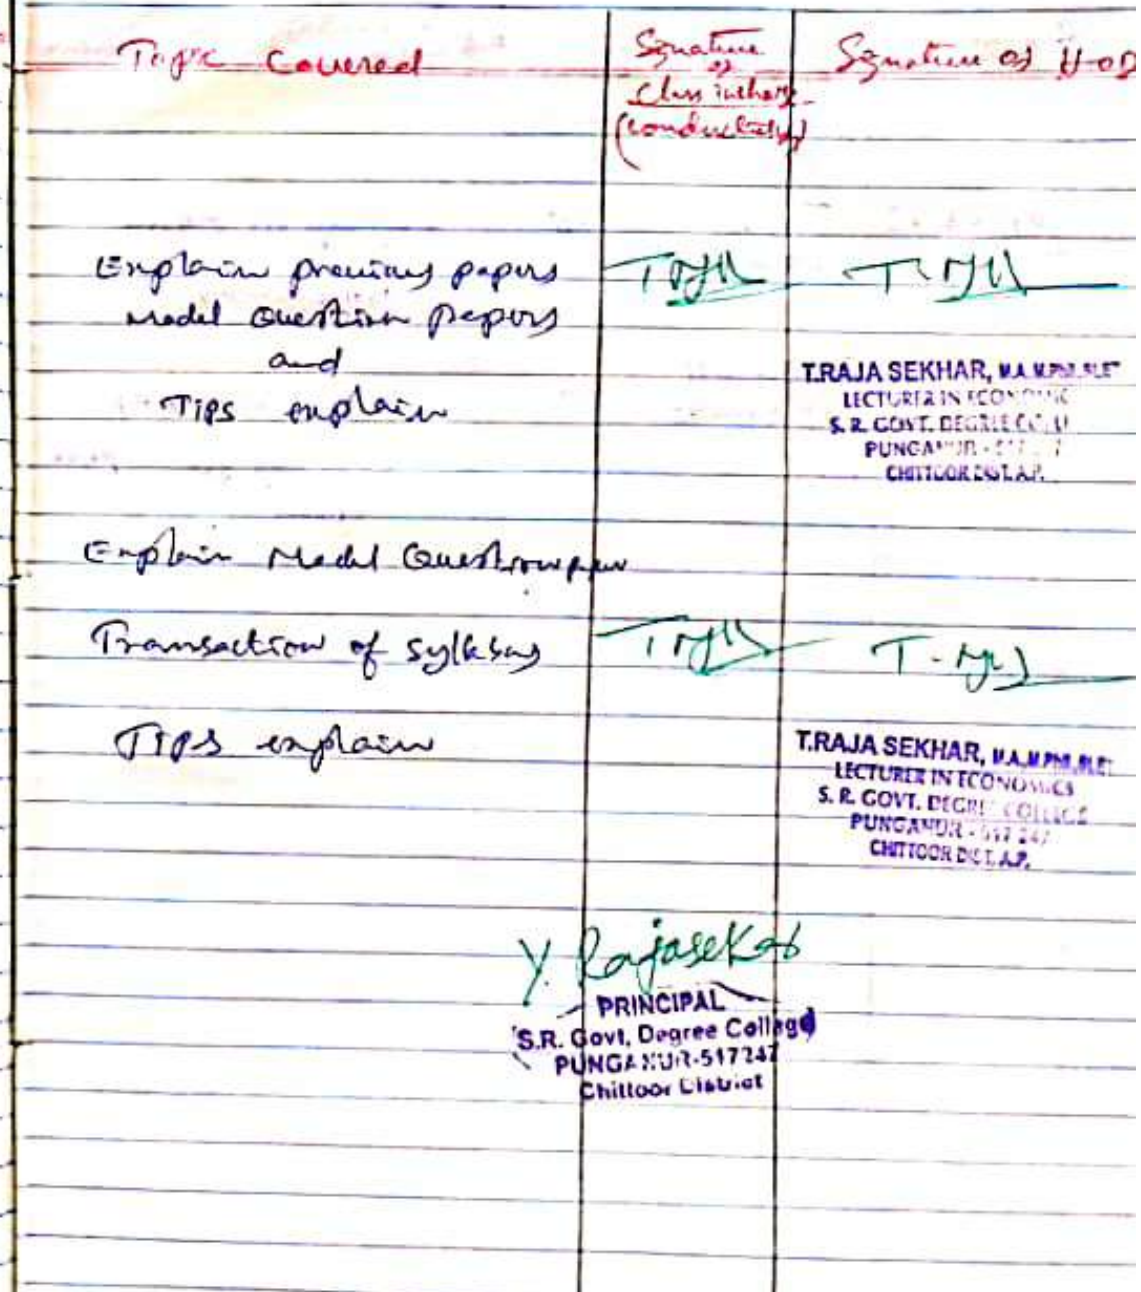 Topic Covered
Signature
of
Class incharge
(conducting)
Signature of H-OD
Explain previous papers
Model Question papers
and
Tips explain
T.RAJA SEKHAR, M.A. M.Phil, SLET
LECTURER IN ECONOMIC
S. R. GOVT. DEGREE COLL
PUNGANUR -
CHITTOOR DIST. A.P.
Explain Model Question paper
Transaction of syllabus
Tips explain
T.RAJA SEKHAR, M.A. M.Phil, SLET
LECTURER IN ECONOMICS
S. R. GOVT. DEGREE COLLEGE
PUNGANUR - 517 247
CHITTOOR DIST. A.P.
Y. Rajasekar
PRINCIPAL
S.R. Govt. Degree College
PUNGANUR-517247
Chittoor District